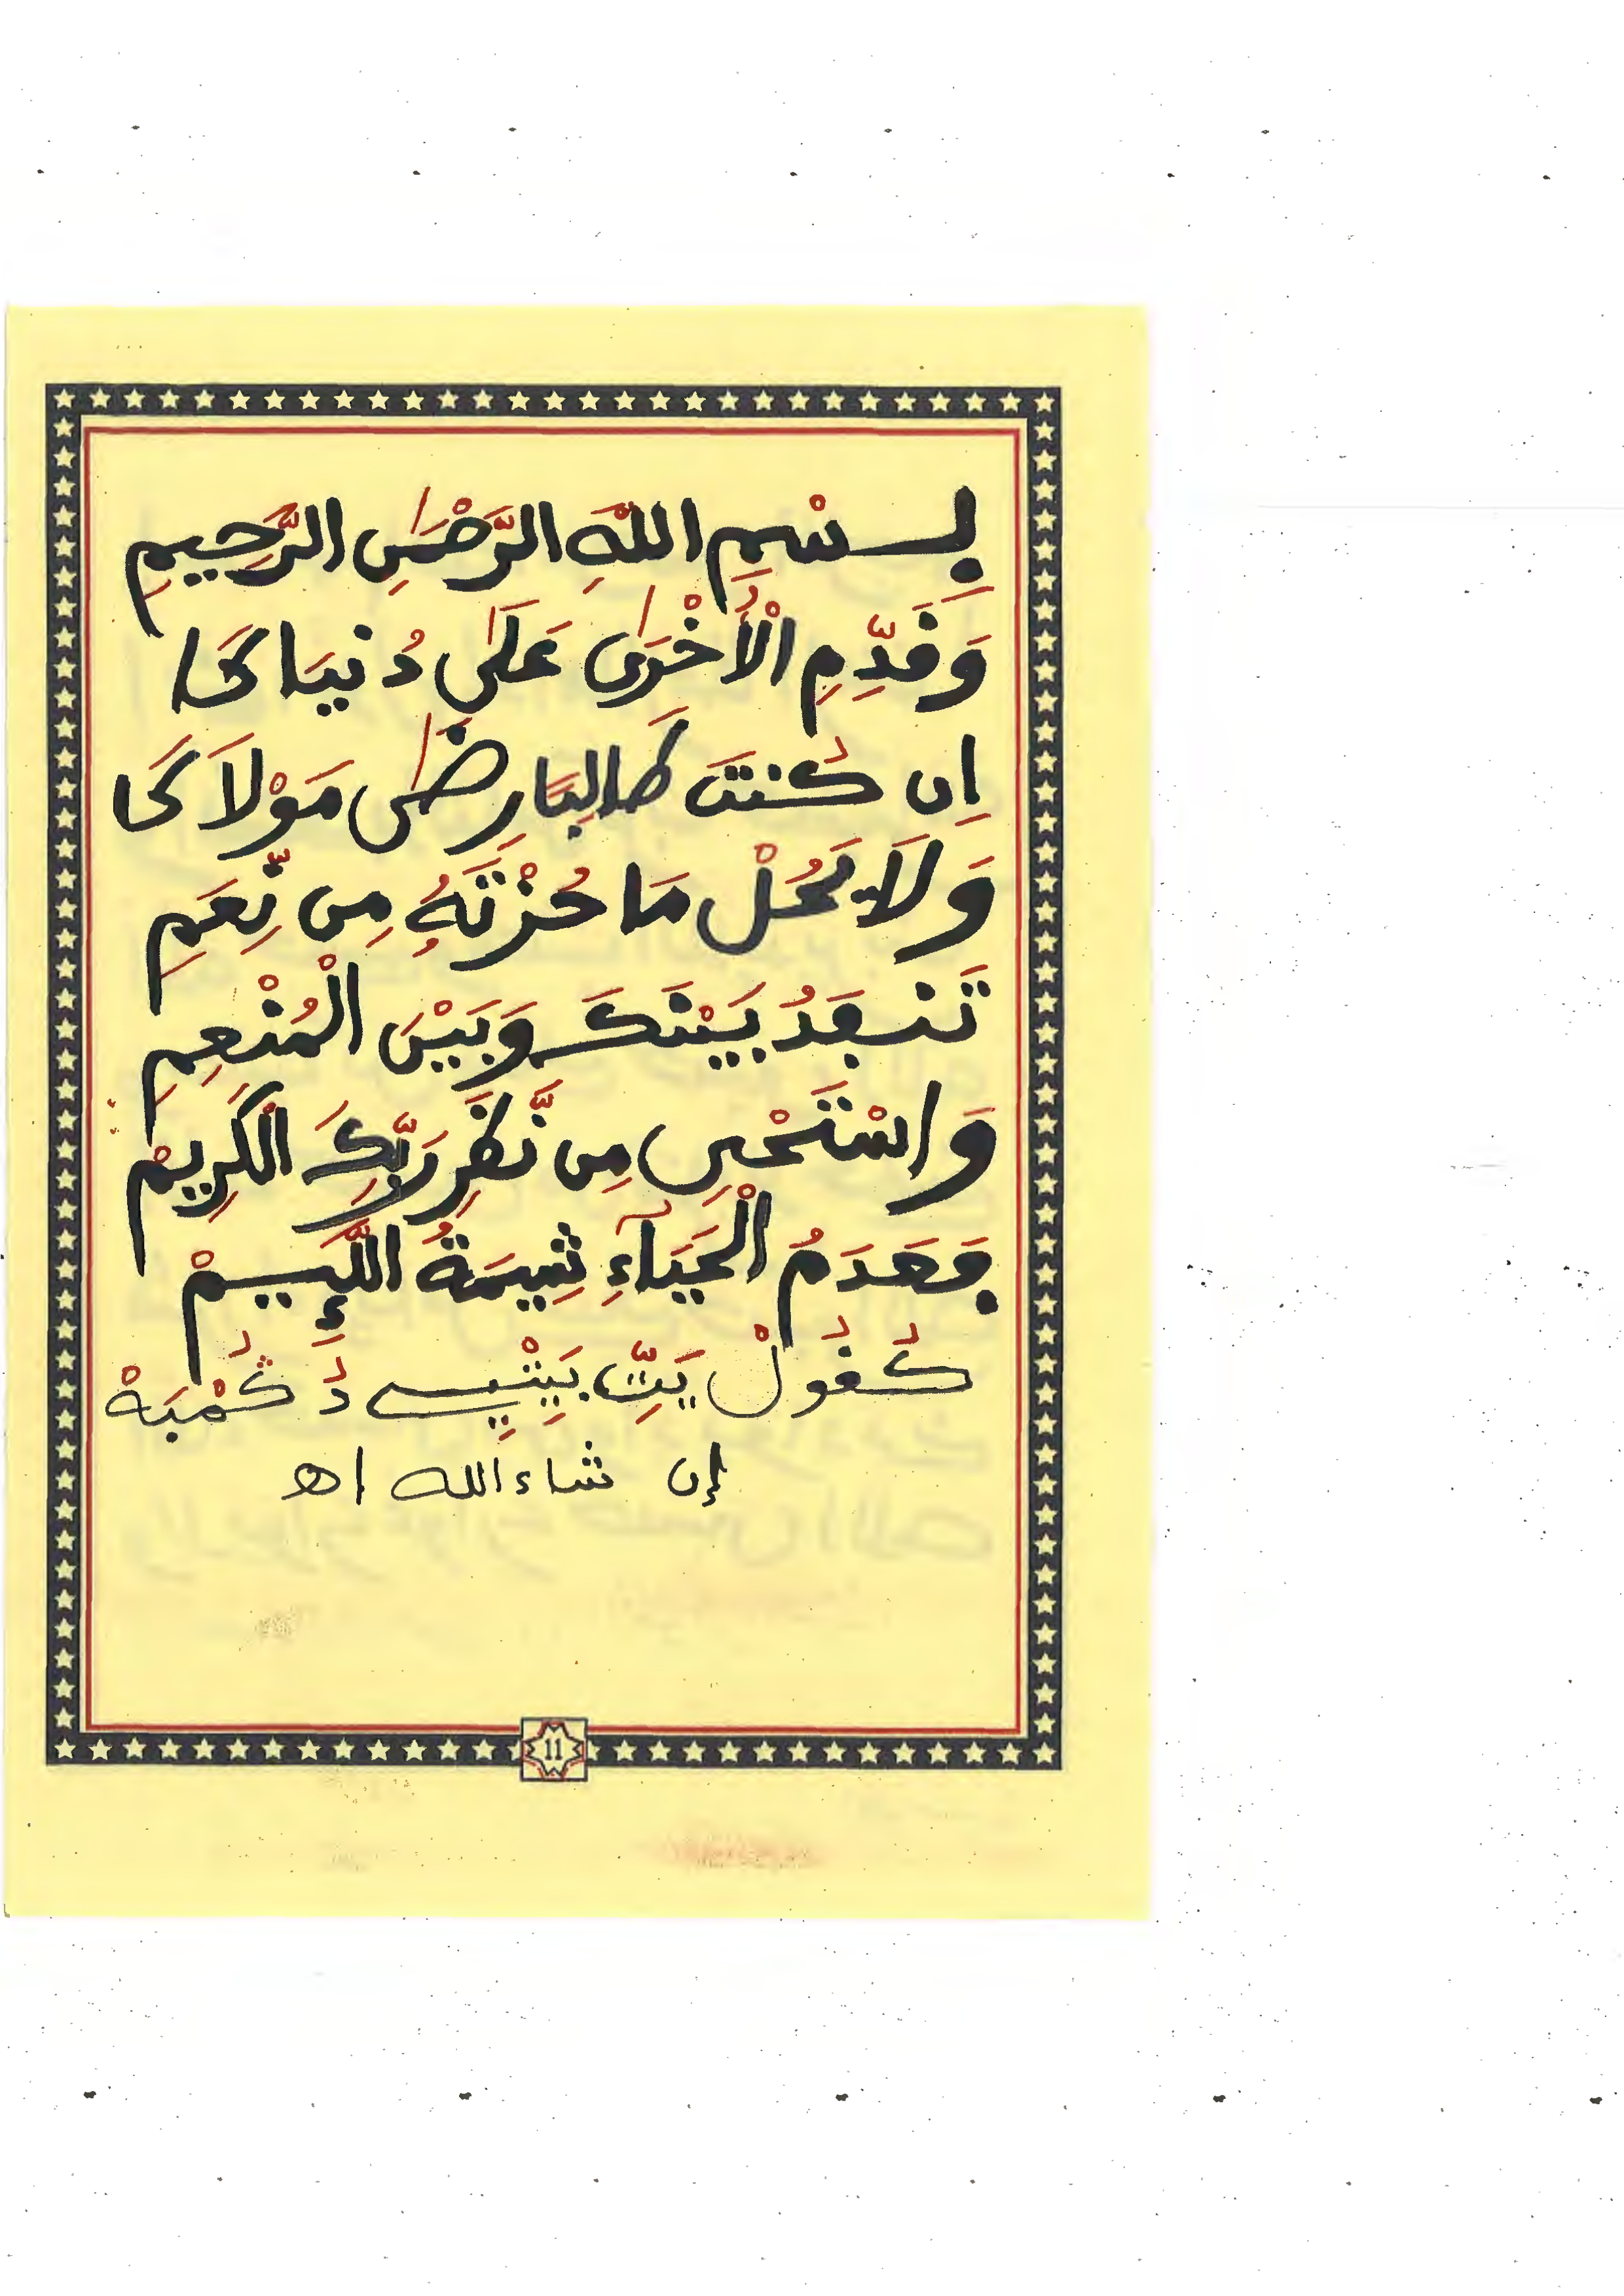 بِسْمِ اللَّهِ الرَّحْمَٰنِ الرَّحِيمِ
وَقَدِّمِ الْأُخْرَىٰ عَلَىٰ دُنْيَاكَا
إِن كُنتَ طَالِبًا رِضَىٰ مَوْلَاكَا
وَلَا يَحُلْ مَا حُزْتَهُ مِن نِّعَمِ
تَنفَدُ بَيْنَكَ وَبَيْنَ الْمُنْعِمِ
وَاسْتَحْيِ مِن نَّظَرِ رَبِّكَ الْكَرِيمْ
فَعَدَمُ الْحَيَآءِ شِيمَةُ اللَّئِيمْ
إن شاء الله اه
11